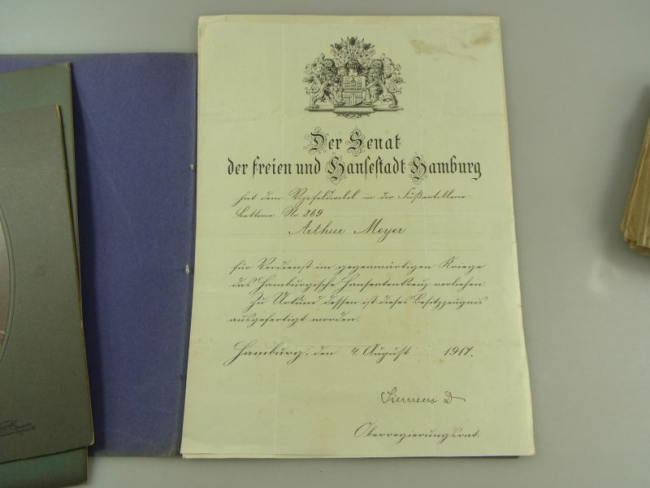 Der Senat
der freien und Hansestadt Hamburg
hat dem Vizefeldwebel in der
Batterie No 269
Arthur Meyer
für Verdienst im gegenwärtigen Kriege
das Hamburgische Hanseatenkreuz verliehen.
Zu Urkund dessen ist dieses Besitzzeugnis
ausgefertigt worden.
Hamburg, den 4. August 1917.
Oberregierungsrat.